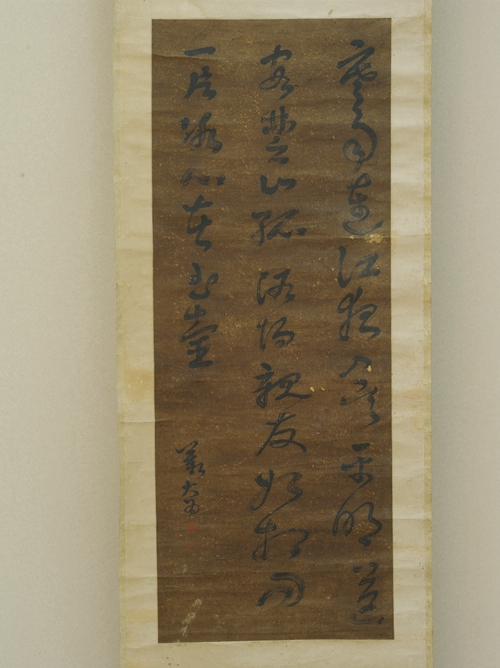 寒雨連江夜入吳平明送
客楚山孤洛陽親友如相問
一片冰心在玉壺